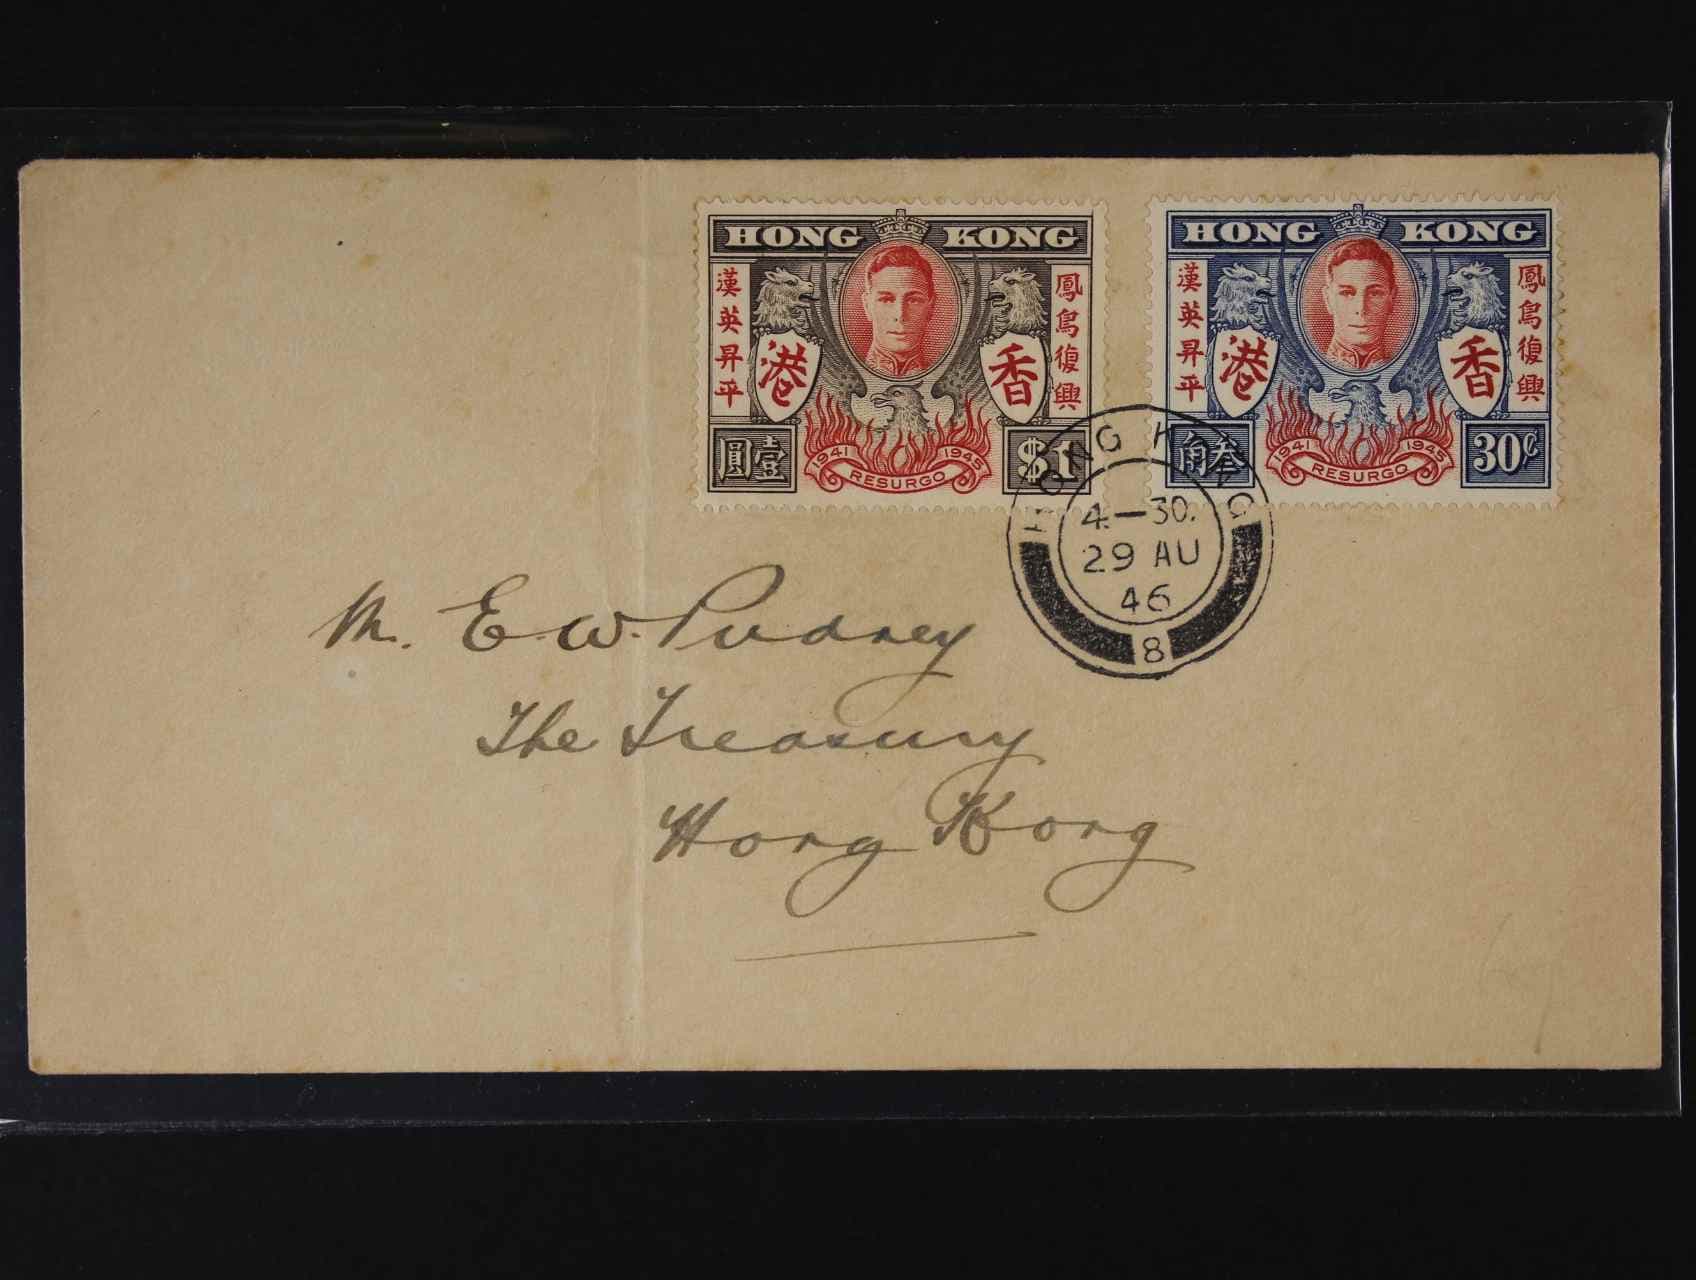 HONG KONG
漢英昇平
鳳鳥復興
港 香
圓壹
1941 RESURGO 1945
$1
HONG KONG
漢英昇平
鳳鳥復興
港 香
角叁
1941 RESURGO 1945
30¢
HONG KONG
4.—30.
29 AU
46
8
Mr. E.W. Pudney
The Treasury
Hong Kong